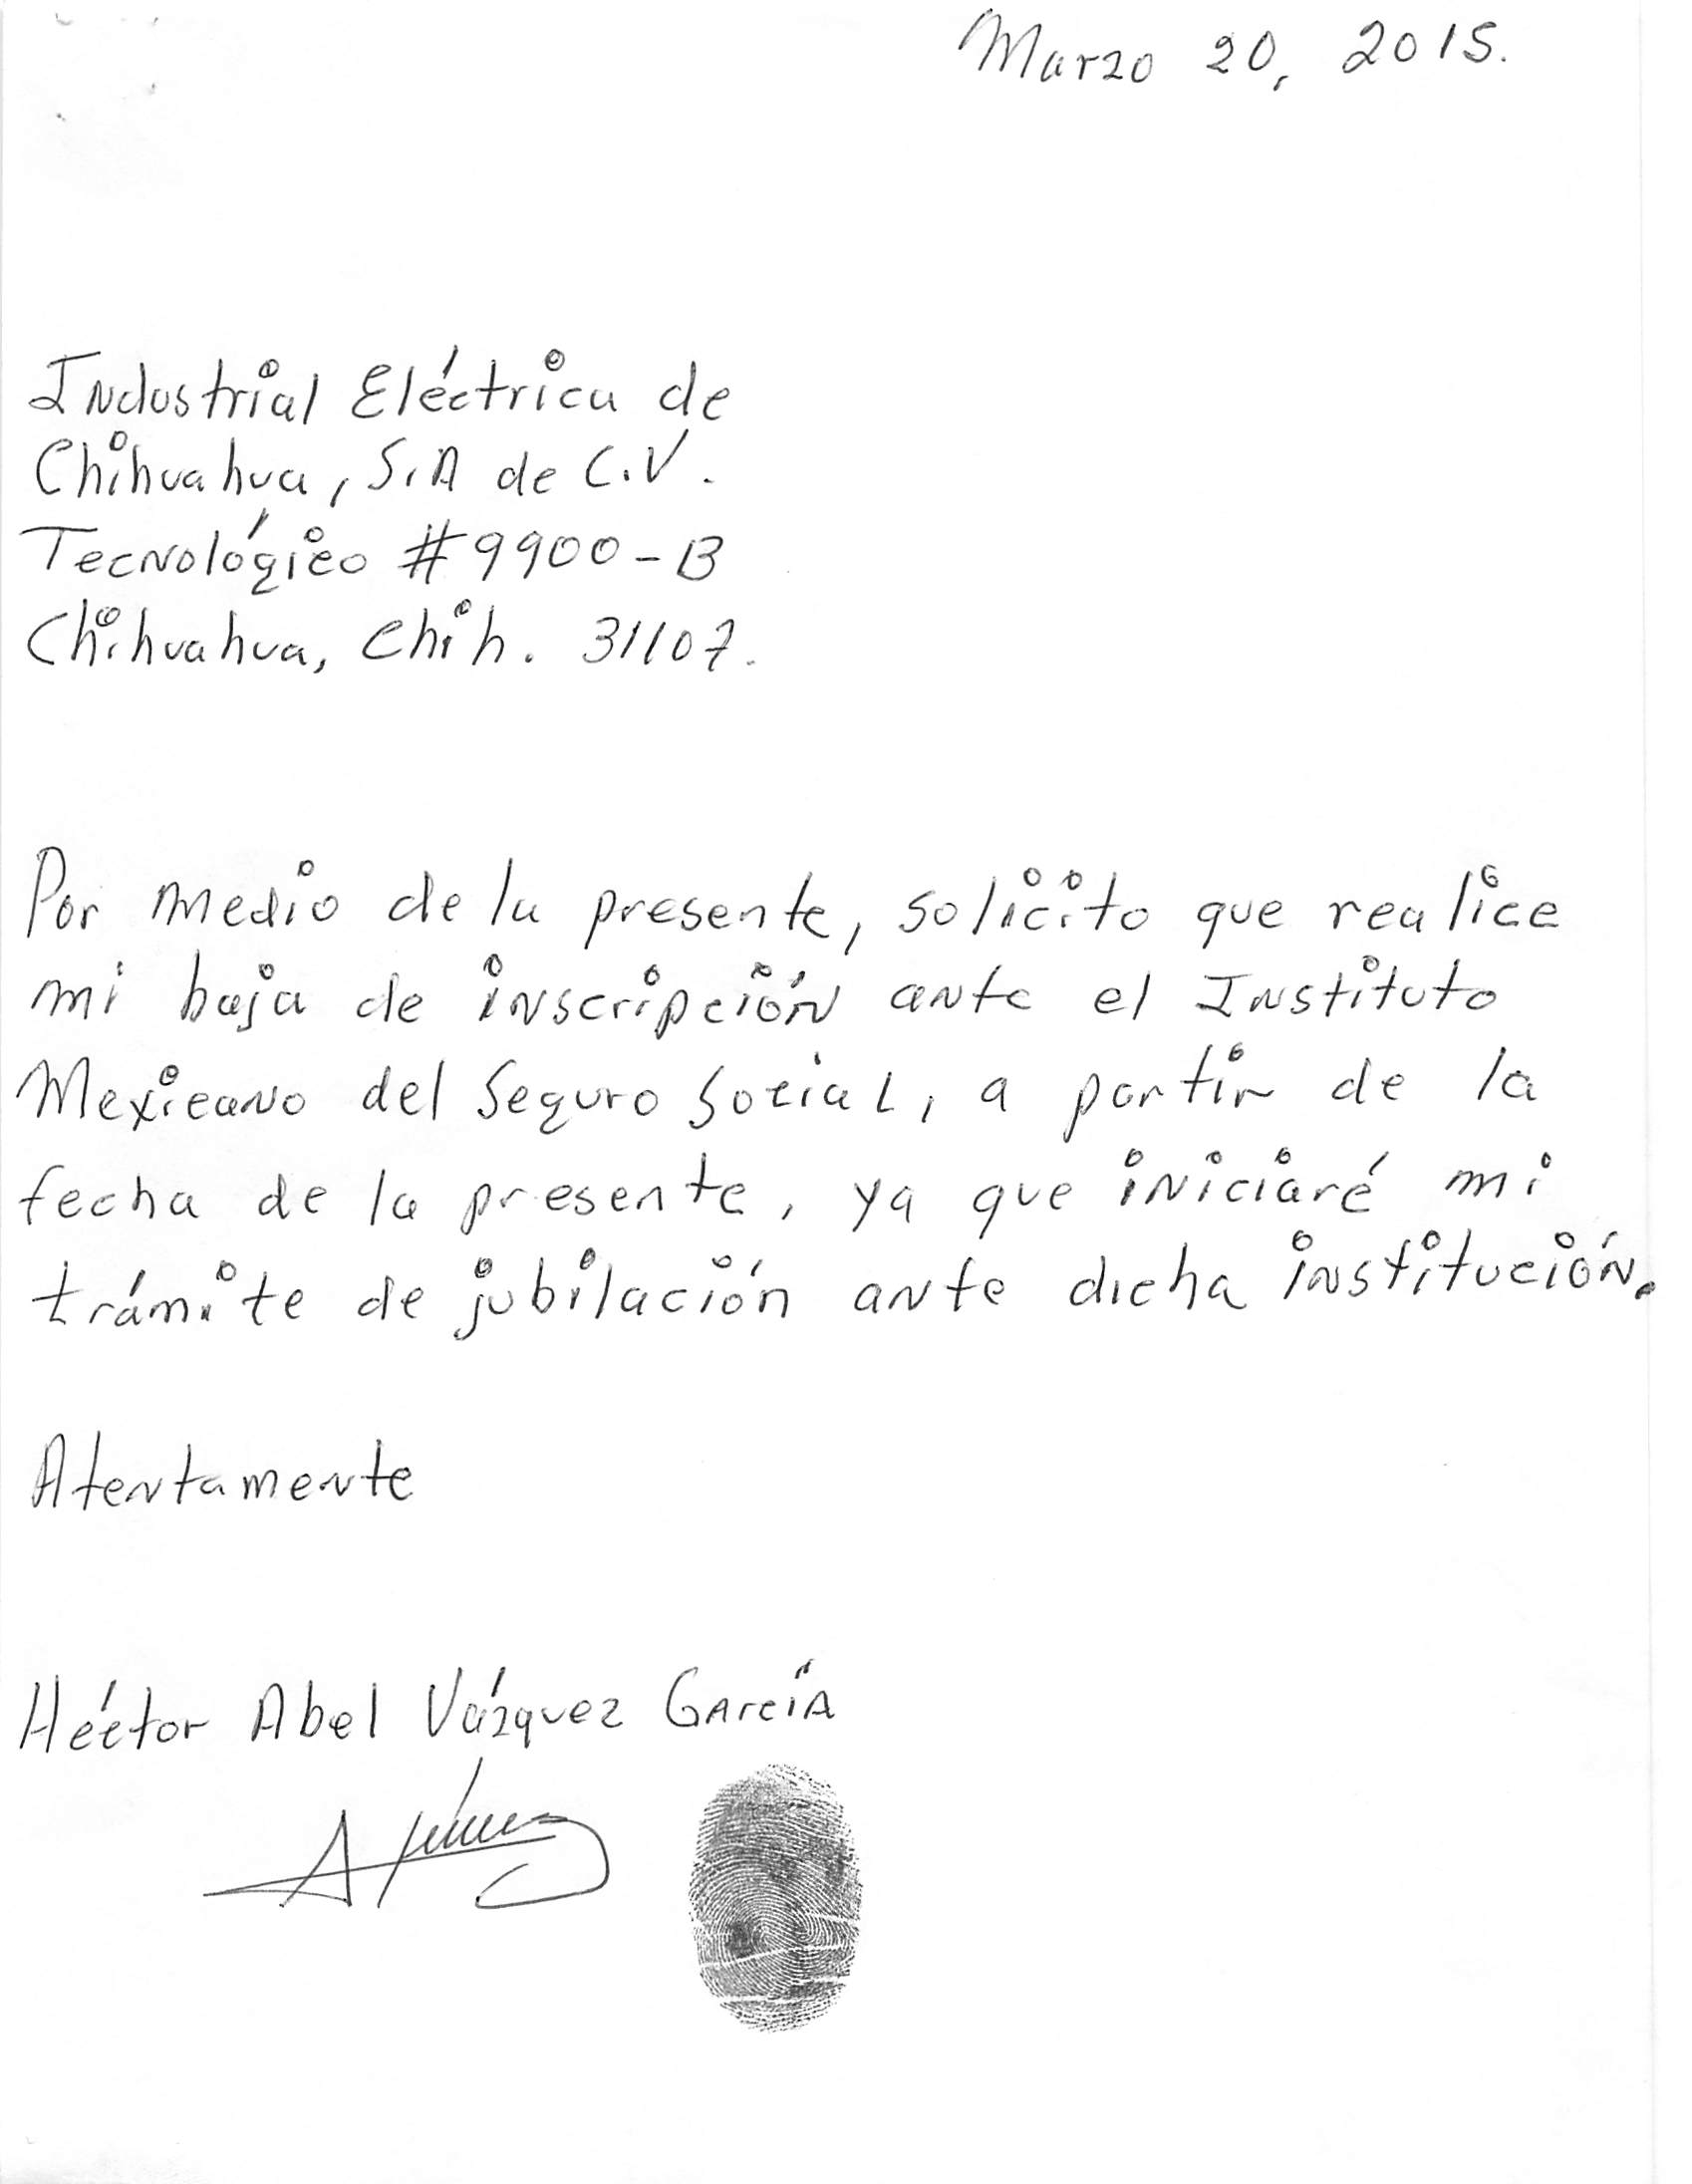 Marzo 20, 2015.
Industrial Eléctrica de
Chihuahua, S.A de C.V.
Tecnológico #9900-B
Chihuahua, Chih. 31107.
Por medio de la presente, solicito que realice
mi baja de inscripción ante el Instituto
Mexicano del Seguro Social, a partir de la
fecha de la presente, ya que iniciaré mi
trámite de jubilación ante dicha institución.
Atentamente
Héctor Abel Vázquez García